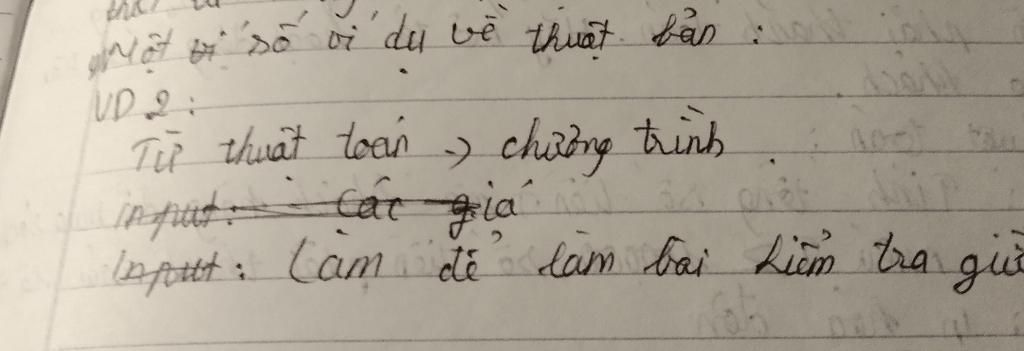 Một ví số ví dụ về thuật bản :
VD 2 :
Từ thuật toán -> chương trình .
input : Các giá
Input : Làm đề làm bài kiểm tra giữ